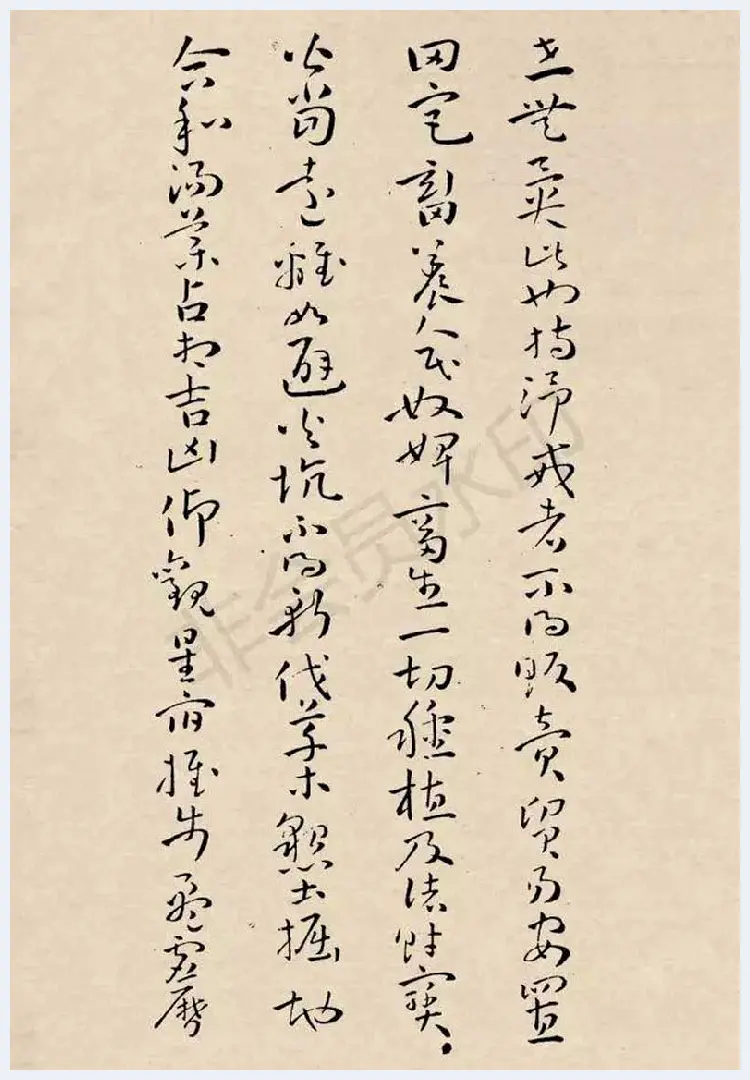 世無異此也持淨戒者不得販賣貿易安置
田宅畜養人民奴婢畜生一切種植及諸財寶
皆當遠離如避火坑不得斬伐草木墾土掘地
合和湯藥占相吉凶仰觀星宿推步盈虛曆
非会员水印